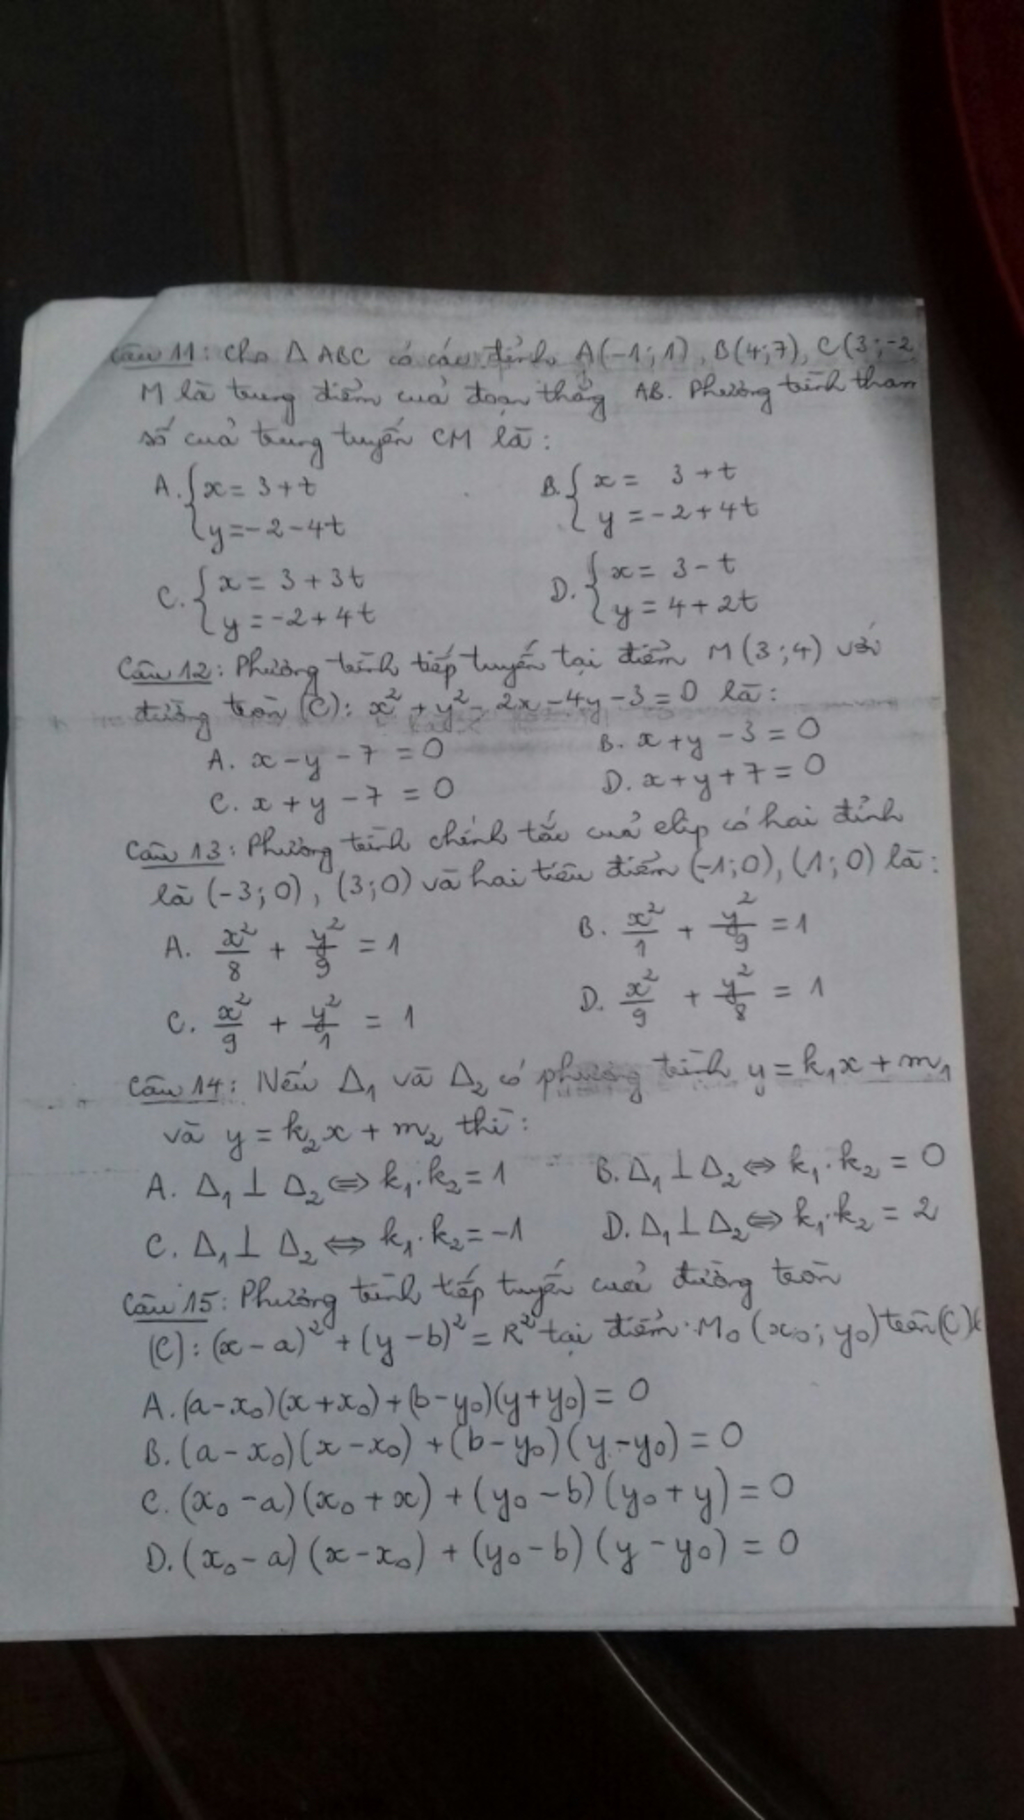 Câu 11: Cho Δ ABC có các đỉnh A(-1;1), B(4;7), C(3;-2
M là trung điểm của đoạn thẳng AB. Phương trình tham
số của trung tuyến CM là:
A. { x = 3 + t
y = -2 - 4t
B. { x = 3 + t
y = -2 + 4t
C. { x = 3 + 3t
y = -2 + 4t
D. { x = 3 - t
y = 4 + 2t
Câu 12: Phương trình tiếp tuyến tại điểm M(3;4) với
đường tròn (C): x² + y² - 2x - 4y - 3 = 0 là:
A. x - y - 7 = 0 B. x + y - 3 = 0
C. x + y - 7 = 0 D. x + y + 7 = 0
Câu 13: Phương trình chính tắc của elip có hai đỉnh
là (-3;0), (3;0) và hai tiêu điểm (-1;0), (1;0) là:
A. x²/8 + y²/9 = 1 B. x²/1 + y²/9 = 1
C. x²/9 + y²/1 = 1 D. x²/9 + y²/8 = 1
Câu 14: Nếu Δ₁ và Δ₂ có phương trình y = k₁x + m₁
và y = k₂x + m₂ thì:
A. Δ₁ ⊥ Δ₂ ⇔ k₁.k₂ = 1 B. Δ₁ ⊥ Δ₂ ⇔ k₁.k₂ = 0
C. Δ₁ ⊥ Δ₂ ⇔ k₁.k₂ = -1 D. Δ₁ ⊥ Δ₂ ⇔ k₁.k₂ = 2
Câu 15: Phương trình tiếp tuyến của đường tròn
(C): (x - a)² + (y - b)² = R² tại điểm M₀(x₀; y₀) trên (C)
A. (a - x₀)(x + x₀) + (b - y₀)(y + y₀) = 0
B. (a - x₀)(x - x₀) + (b - y₀)(y - y₀) = 0
C. (x₀ - a)(x₀ + x) + (y₀ - b)(y₀ + y) = 0
D. (x₀ - a)(x - x₀) + (y₀ - b)(y - y₀) = 0